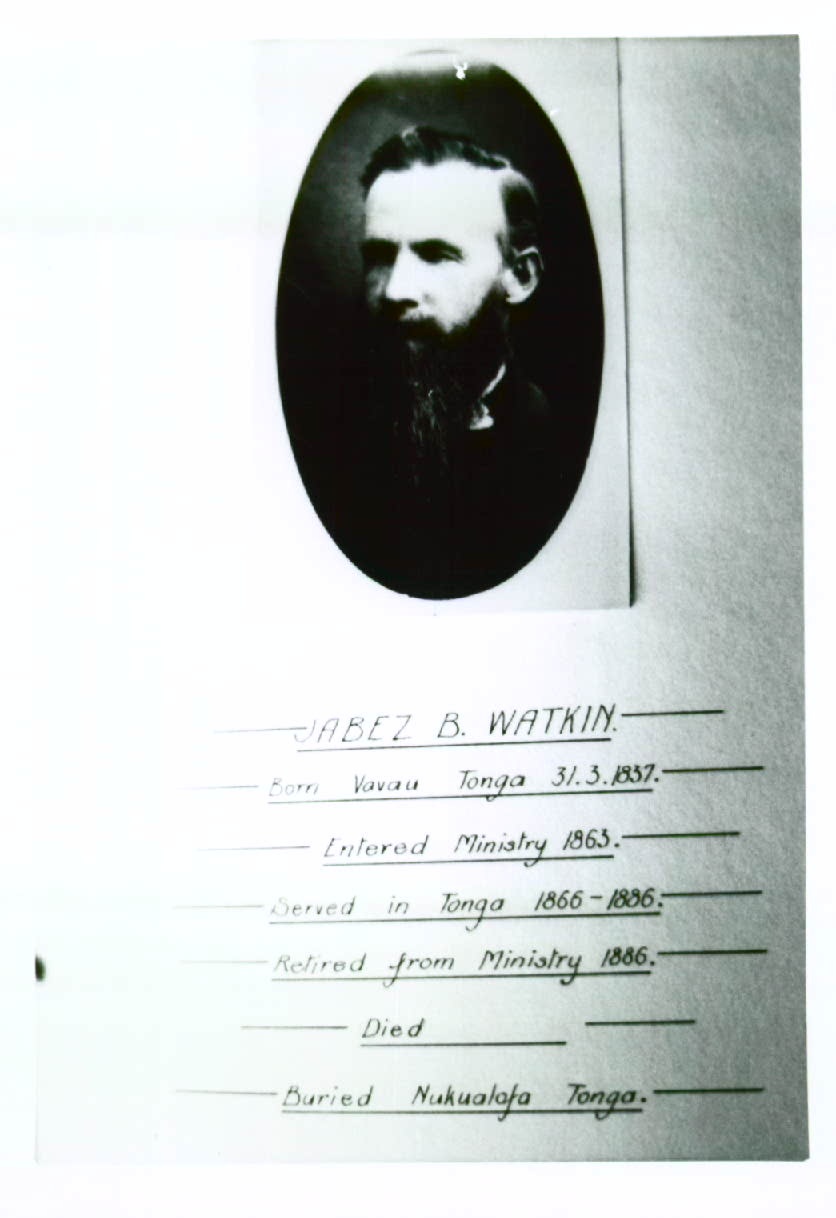 JABEZ B. WATKIN.
Born Vavau Tonga 31.3.1837.
Entered Ministry 1863.
Served in Tonga 1866-1886.
Retired from Ministry 1886.
Died
Buried Nukualofa Tonga.